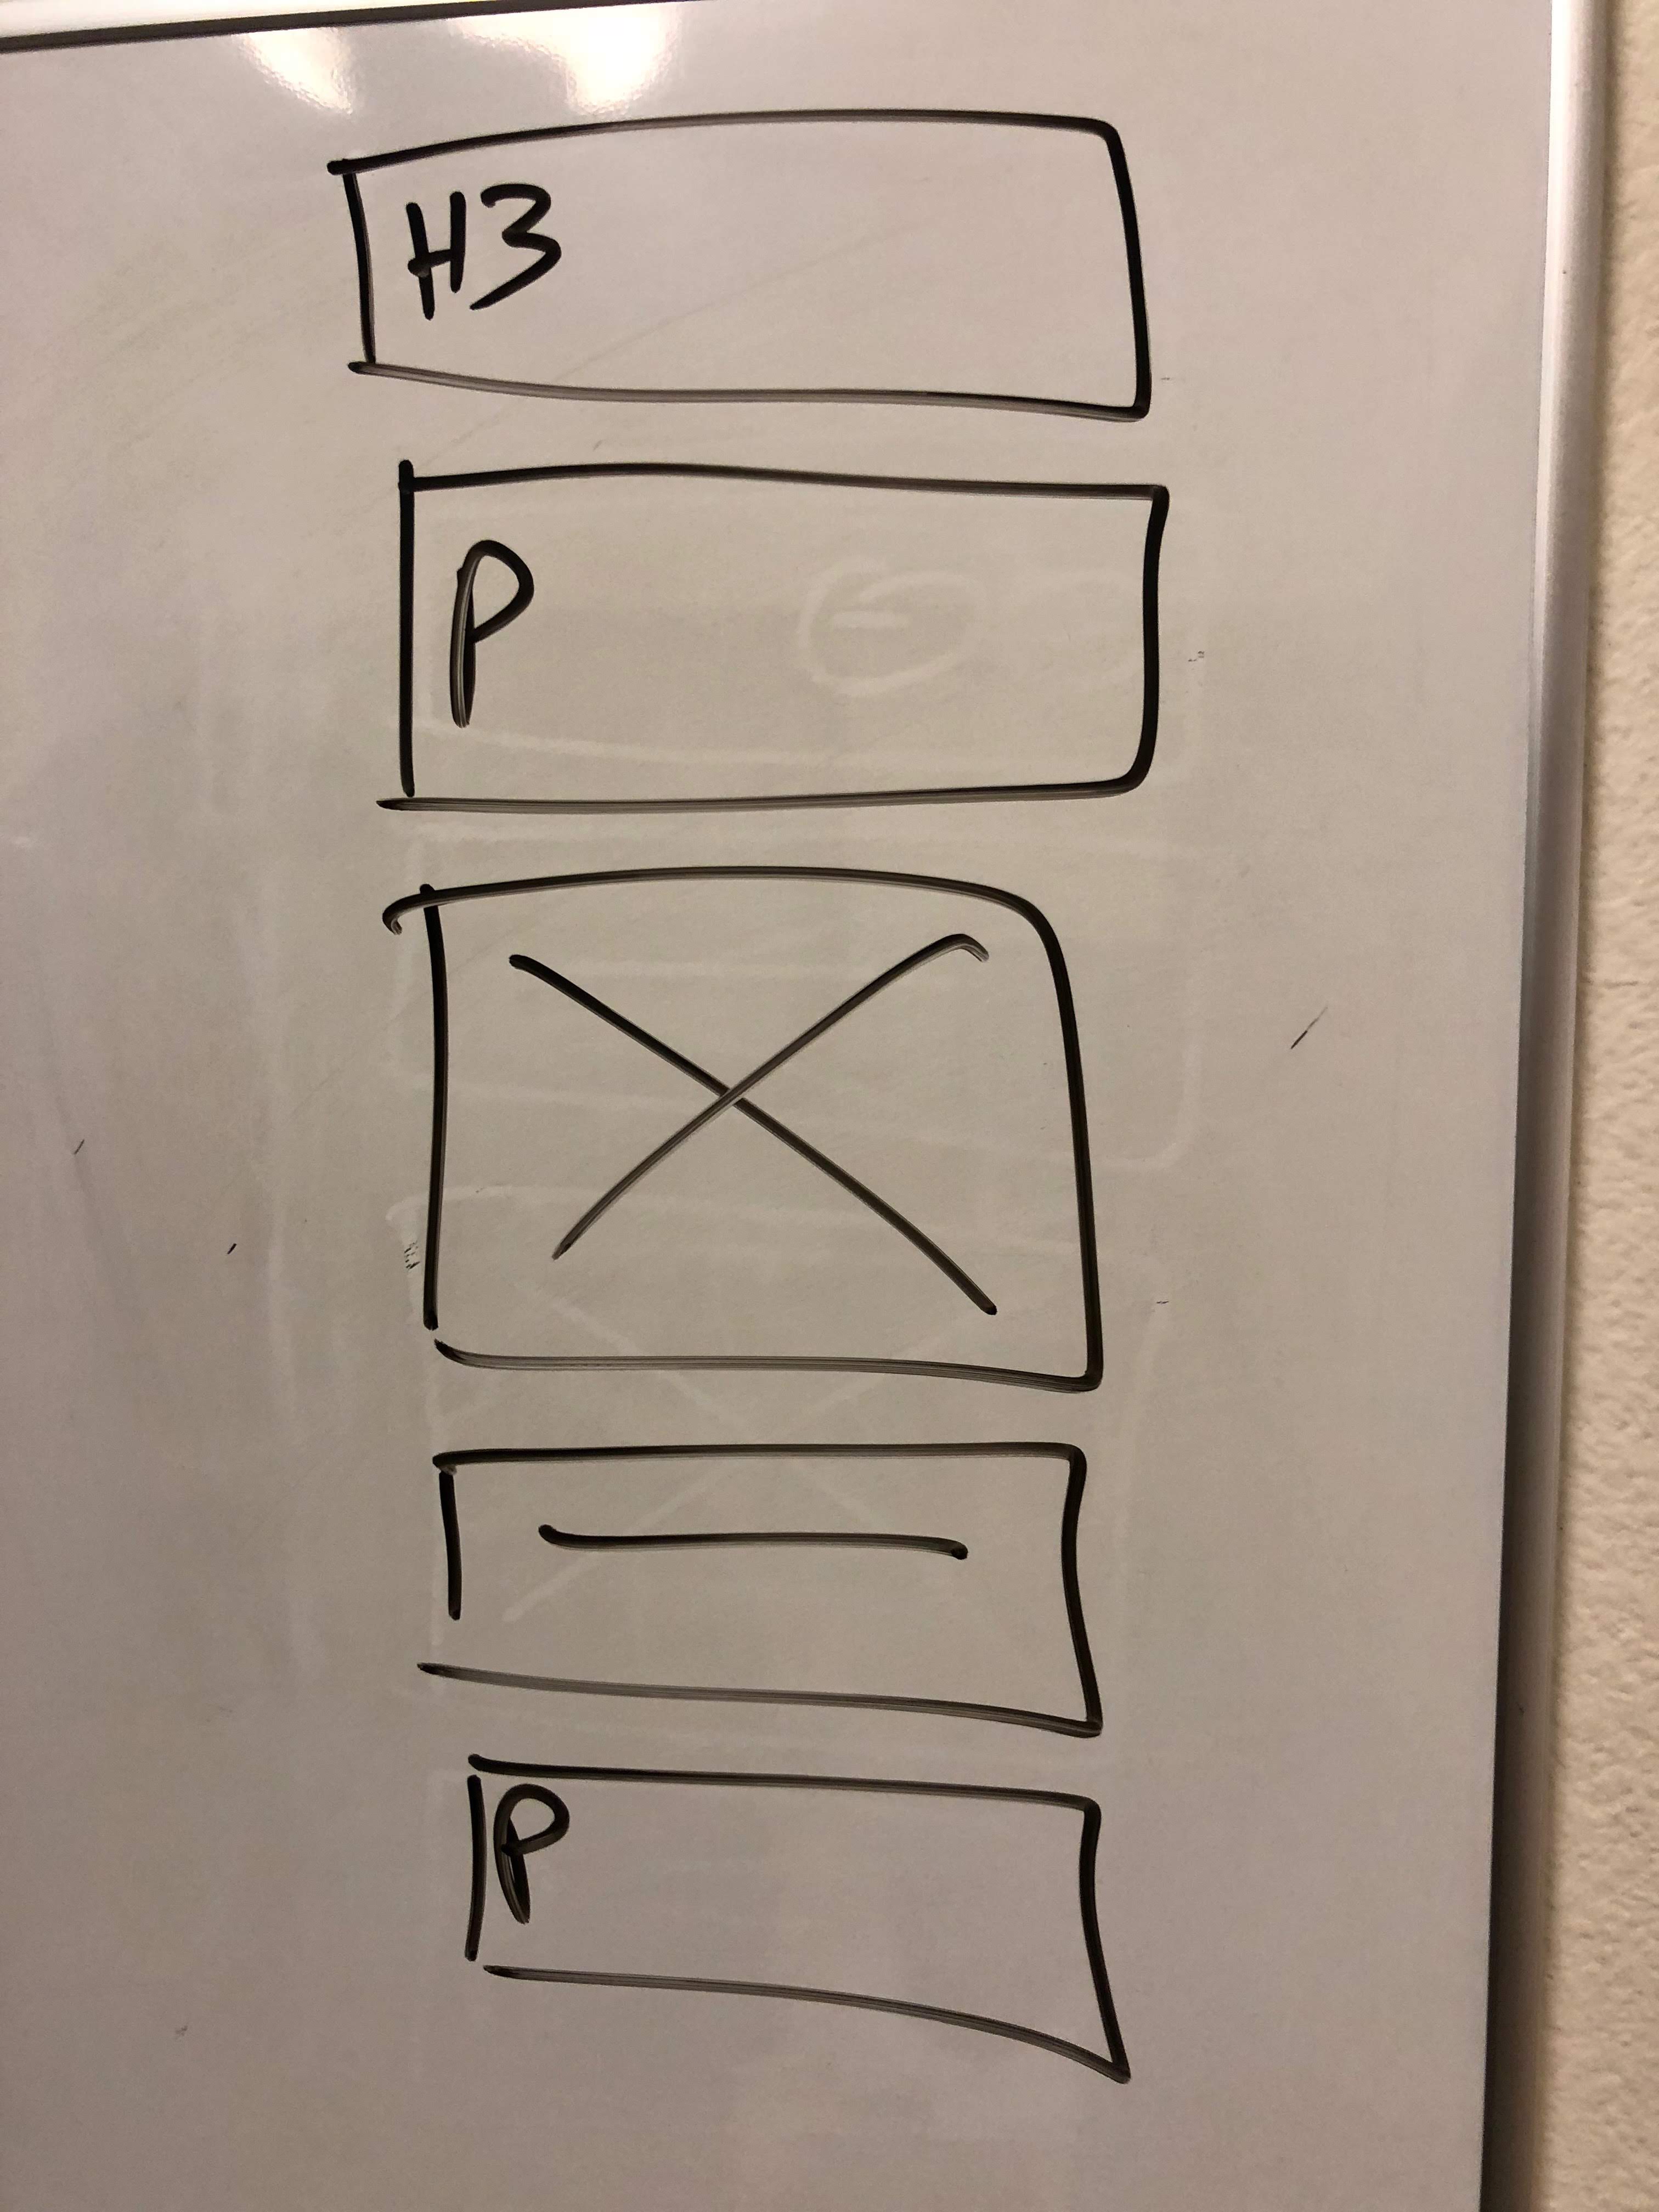 H3
P
P